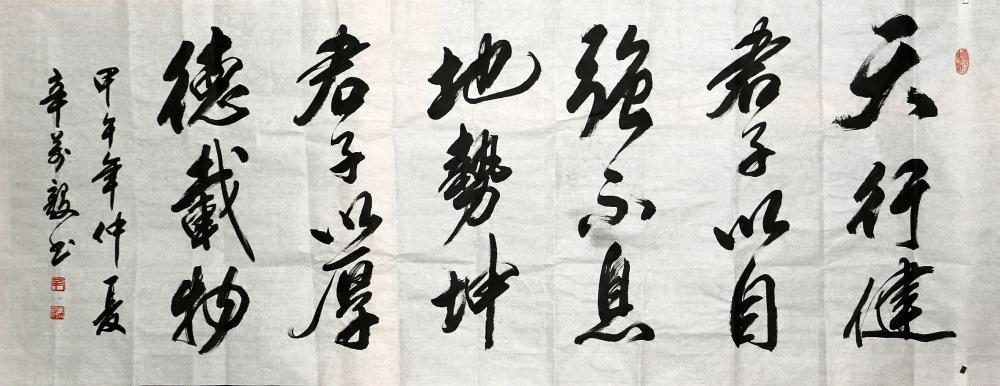 天行健
君子以自
強不息
地勢坤
君子以厚
德載物
甲午年仲夏
辛萬毅书